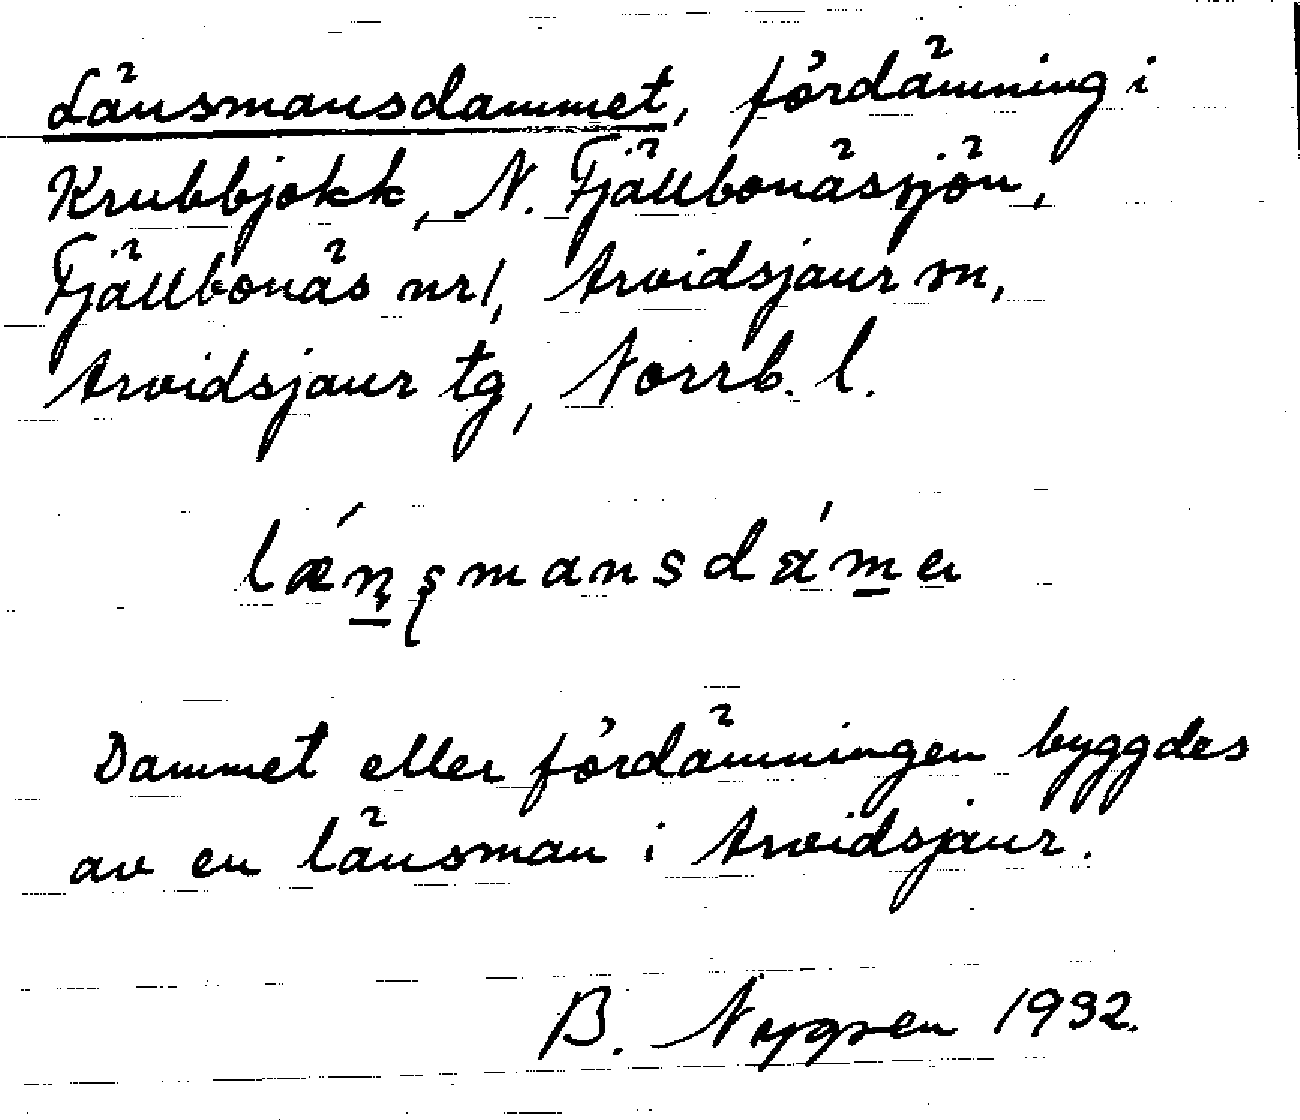 Länsmansdammet, fördämning i
Krubbjokk, N. Fjällbonässjön,
Fjällbonäs nr 1, Arvidsjaur sn,
Arvidsjaur tg, Norrb. l.
lǽn̥smansdáma
Dammet eller fördämningen byggdes
av en länsman i Arvidsjaur.
B. Nygren 1932.